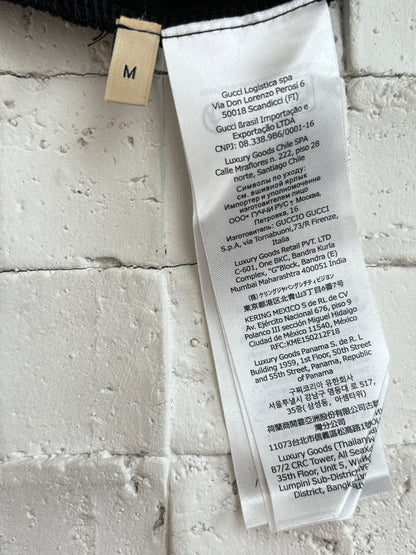 M
Gucci Logistica spa
Via Don Lorenzo Perosi 6
50018 Scandicci (FI)
Gucci Brasil Importação e
Exportação LTDA
CNPJ: 08.338.986/0001-16
Luxury Goods Chile SPA
Calle Miraflores n. 222, piso 28
norte, Santiago Chile
Символы по уходу:
см. вшивной ярлык
Импортер и уполномочение
изготовителем лицо
ООО" ГУЧЧИ РУС" Москва,
Петровка, 16
Изготовитель: GUCCIO GUCCI
S.p.A, via Tornabuoni,73/R Firenze,
Italia
Luxury Goods Retail PVT. LTD
C-601, One BKC, Bandra Kurla
Complex, "G"Block, Bandra (E)
Mumbai Maharashtra 400051 India
(株) ケリングジャパングッチディビジョン
東京都港区北青山3丁目6番7号
KERING MEXICO S de RL de CV
Av. Ejército Nacional 676, piso 9
Polanco III sección Miguel Hidalgo
Ciudad de México 11540, México
RFC:KME150212F18
Luxury Goods Panama S. de R. L
Building 1959, 1st Floor, 50th Street
and 55th Street, Panama, Republic
of Panama
구찌코리아 유한회사
서울특별시 강남구 영동대로 517,
35층 (삼성동, 아셈타워)
荷蘭商開雲亞洲股份有限公司古馳
灣分公司
11073台北市信義區松
Luxury Goods (Thailand)
87/2 CRC Tower, All Seas
35th Floor, Unit 5, W
Lumpini Sub-District
District, Bangk